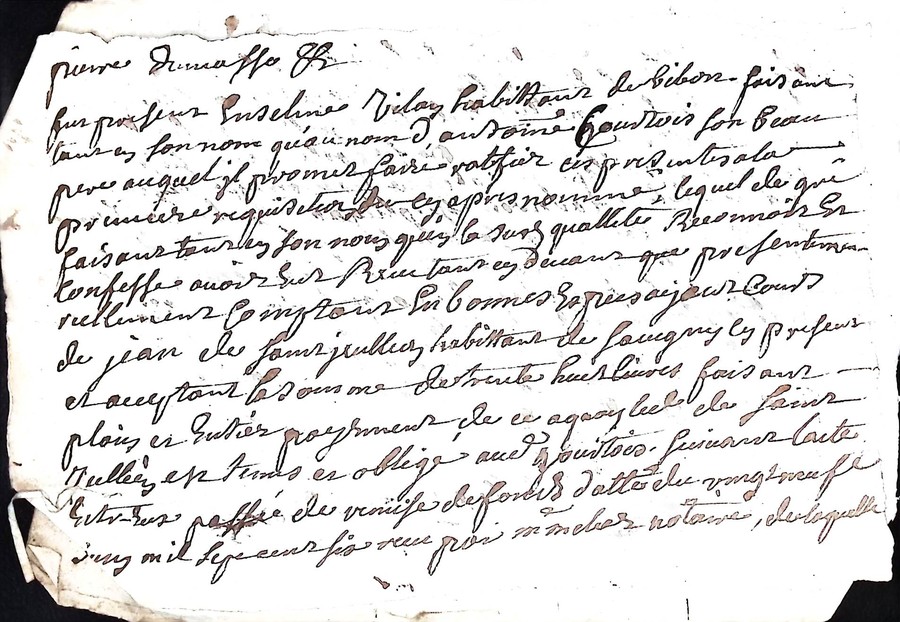 pierre dumasse
fut present Enselme Vilay habittant de bibon faisant
tant en son nom qu'au nom d'antoine Courtois son beau
pere auquel jl promet faire ratifier ces presentes a la
premiere requisition du cy apres nommé, lequel de gré
faisant tant en son nom qu'en la susd qualletté Reconnoit Et
Confesse avoir Eut Receu tant cy devant que presentemen
réellement Comptant En bonnes Espeses ayant Cours
de jean de saint jullien habittant de savigny cy present
et acceptant la somme de trente huit livres faisant
plain et Entier payement de ce a quoy led de saint
Jullien est tenus et obligé aud Courtois suivant lacte
Entreux de remise de fonds datte du vingt neufe
mil sept cent six receu par me notaire, de laquelle